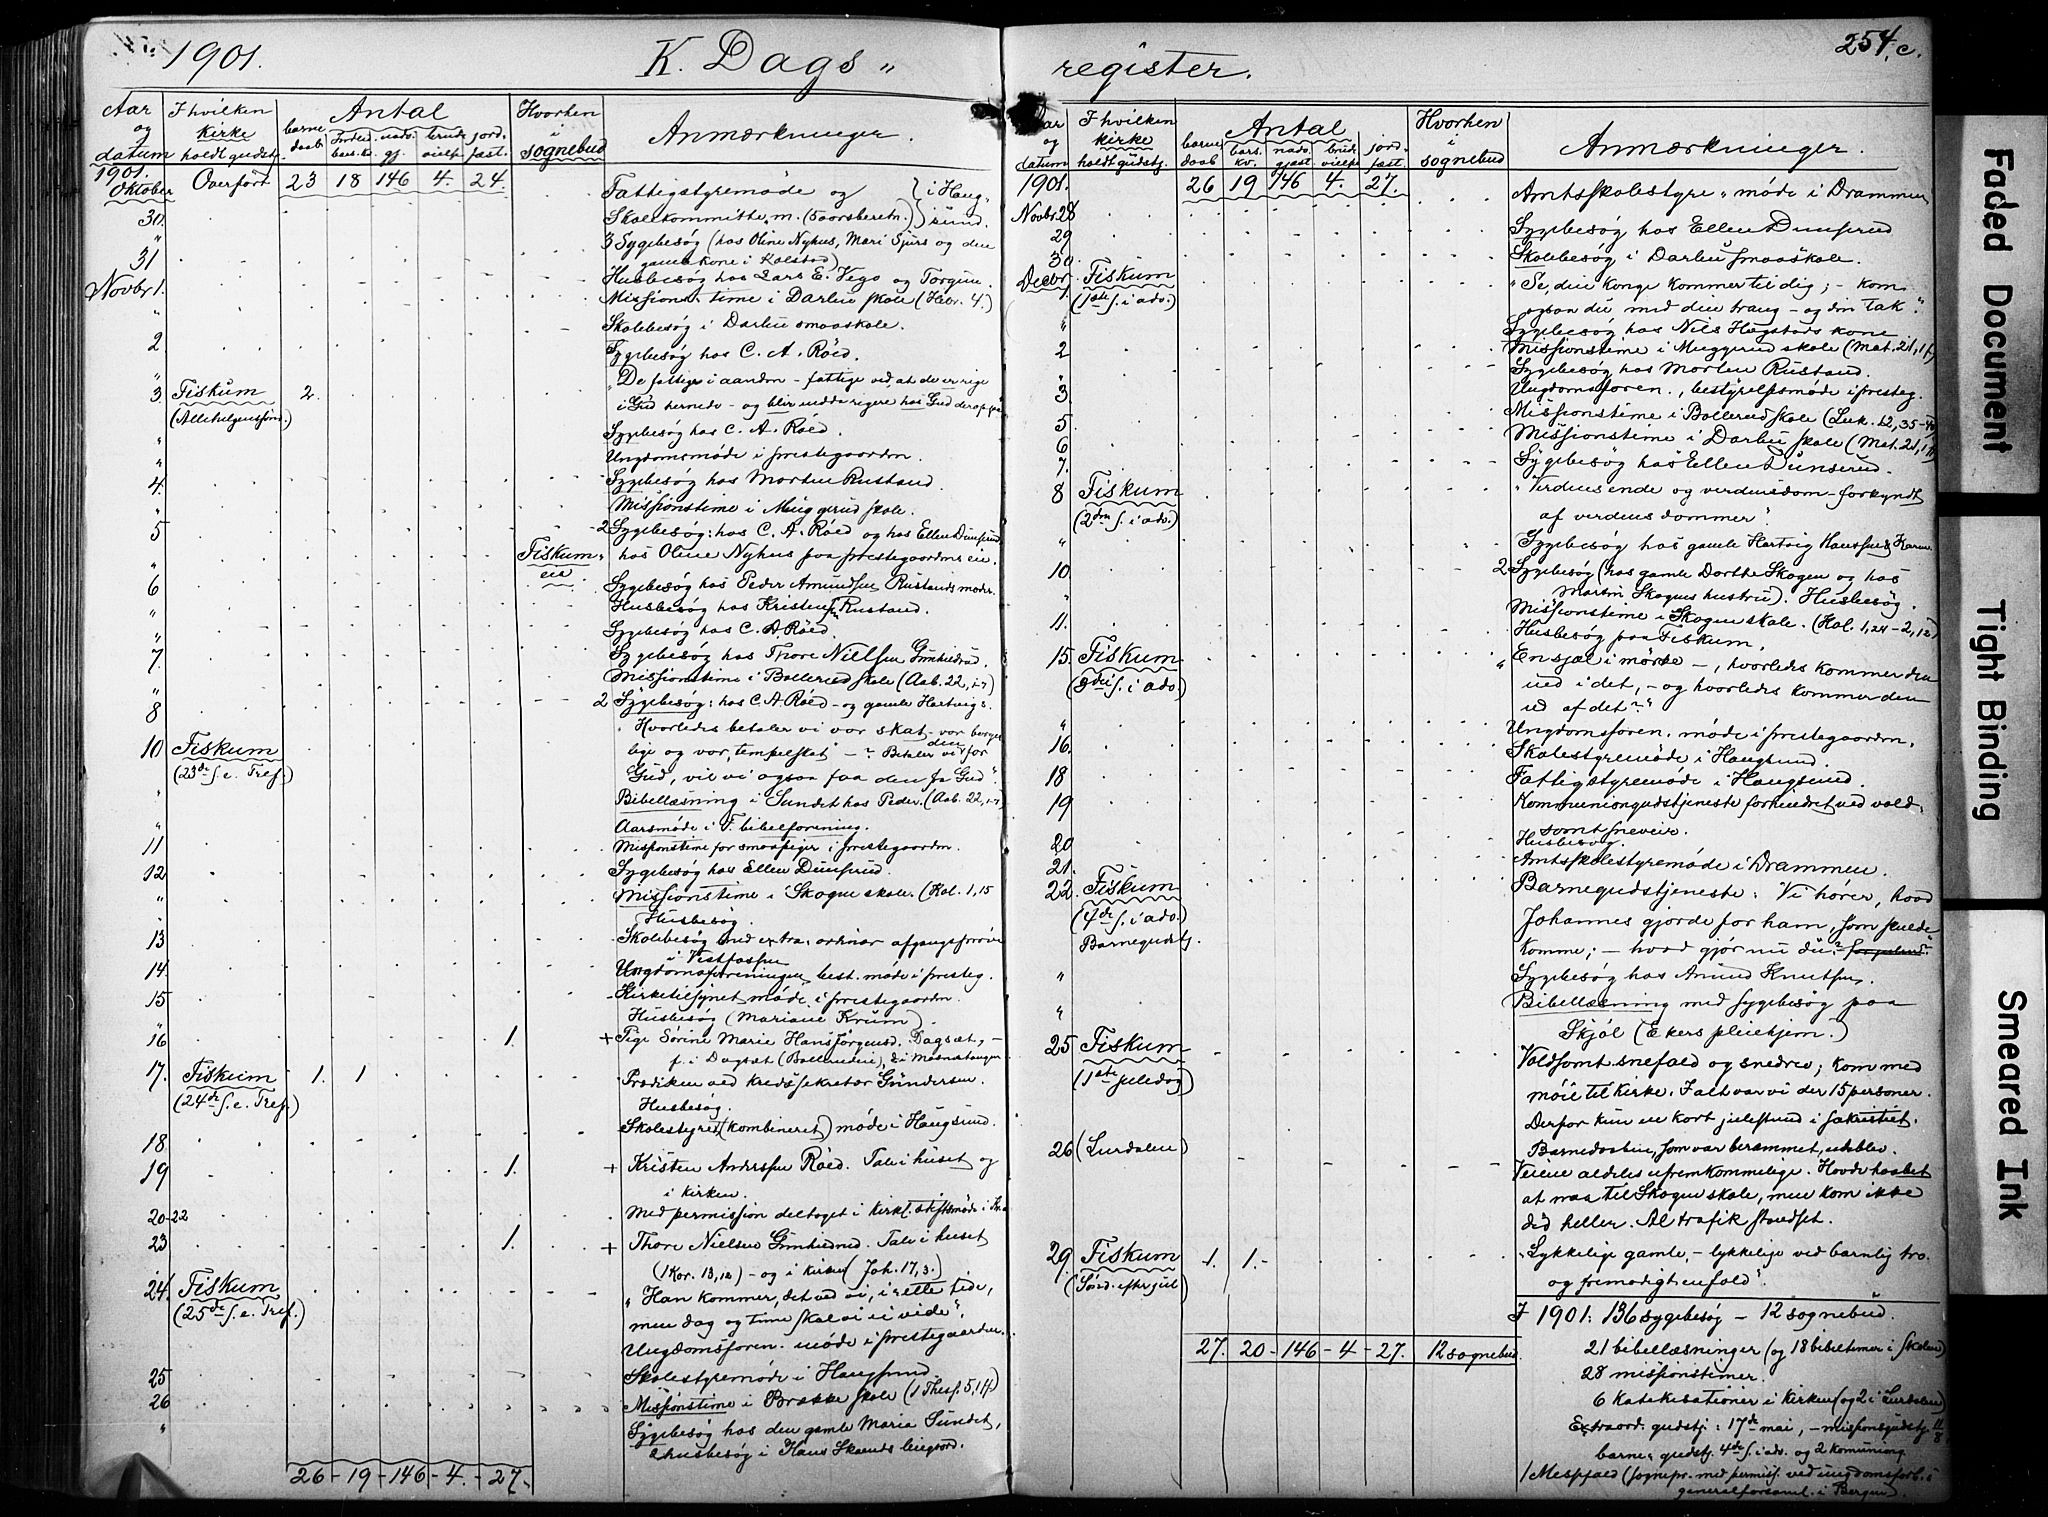 1901.
K. Dags„
Aar og datum
I hvilken kirke holdt gudstj.
Antal
barne daab
nadv. gj.
brude vielp.
jord. fæst.
Hvorhen i sognebud
Anmærkninger.
1901. Oktober Overført 23 18 146 4. 24.
Fattigstyremøde og } i Haug-
30. Skolekommitte m. (5 aarsberetn.) } sund.
„ 3 Sygebesøg (hos Oline Nyhus, Mari Sjurs og den
31 gamle kone i Kolstad)
Husbesøg hos Lars E. Vego og Torgun.
Novbr 1. Missionstime i Darbu skole (Hebr. 4.)
„ Skolebesøg i Darbu smaaskole.
2 Sygebesøg hos C. A. Røed.
„ „De fattige i aanden – fattige ved, at de er rige
3. Fiskum 2. i Gud hernede – og blir endda rigere hos Gud deroppe
(Allehelgenssønd.)
„ Sygebesøg hos C. A. Røed.
„ Ungdomsmøde i prestegaarden.
4. Sygebesøg hos Morten Rustand.
„ Missionstime i Muggerud skole.
5 2 Sygebesøg: hos C. A. Røed og hos Ellen Dunserud
„ Fiskum- eie hos Oline Nyhus paa prestegaardens eie.
6 Sygebesøg hos Peder Amundsen Rustands moder.
„ Husbesøg hos Kristen Rustand.
„ Sygebesøg hos C. A. Røed.
7 Sygebesøg hos Thore Nielsen Gunhildrud.
„ Missionstime i Bollerud skole (Aab. 22, 1-7)
8 2 Sygebesøg: hos C. A. Røed – og gamle Hartvigs.
10 Fiskum „Hvorledes betaler vi vor skat – vor borger-
(23de s. e. Tref.) lige og vor „tempelskat“ –? Betaler vi den for
Gud, vil vi ogsaa faa den fra Gud“.
„ Bibellæsning i Sundet hos Peder. (Aab. 22, 1-7)
„ Aarsmøde i F. bibelforening.
11 Missionstime for smaapiger i prestegaarden.
12 Sygebesøg hos Ellen Dunserud.
„ Missionstime i Skogen skole. (Kol. 1, 15
Husbesøg.
13 Skolebesøg med extra-ordinær afgangsprøve
i Vestfossen
14. Ungdomsforeningen, best. møde i presteg.
15 Kirketilsynet møde i prestegaarden.
Husbesøg (Mariane Krum).
16 1. + Pige Sørine Marie Hansjørgensd. Dagsæt, –
f. i Dagsæt (Bollerudeie),
17. Fiskum 1. 1 Prædiken ved kredssekretær Gundersen.
(24de s. e. Tref.) Husbesøg.
18 Skolestyret (kombineret) møde i Haugsund.
19 1. + Kristen Anderssen Røed. Tale i huset og
i kirken.
20-22 Med permission deltaget i kirkl. stiftsmøde i Kr.a
23 1. + Thore Nielsen Gunhildrud. Tale i huset
(1 Kor. 13, 12) – og i kirken (Joh. 17, 3.)
24. Fiskum „Han kommer, det ved vi, i rette tide,
(25de s. e. Tref.) men dag og time skal vi ei vide“.
Ungdomsforen. møde i prestegaarden.
25 Skolestyremøde i Haugsund.
26 Missionstime i Brække skole (1 Thess. 5, 1 ff)
„ Sygebesøg hos den gamle Maria Sundet,
2 husbesøg i Hans
26 – 19 – 146 – 4. – 27.
register.
254, c.
Aar og datum
I hvilken kirke holdt gudstj.
Antal
barne daab
bars. kv.
nadv. gjæst.
brud. vielp.
jord. fæst.
Hvorhen i sognebud
Anmærkninger.
1901. 26 19 146 4. 27. Amtsskolestyre„ møde i Drammen
Novbr. 28 Sygebesøg hos Ellen Dunserud
29 Skolebesøg i Darbu smaaskole.
30.
Decbr 1. Fiskum „Se, din konge kommer til dig; – kom
(1ste s. i adv.) ogsaa du med din trang – og din tak“.
„ Sygebesøg hos Nils Hagstads kone
2 Missionstime i Muggerud skole (Mat. 21, 1 f)
„ Sygebesøg hos Morten Rustand.
3. Ungdomsforen., bestyrelsesmøde i presteg.
5 Missionstime i Bollerud skole (Luk. 12, 35-40)
6 Missionstime i Darbu skole (Mat. 21, 1 ff)
7. Sygebesøg hos Ellen Dunserud.
8 Fiskum „Verdens ende og verdensdom – forkyndt
(2den s. i adv.) af verdens dommer“.
„ Sygebesøg hos gamle Hartvig Hanssen & Karen
10 2 Sygebesøg (hos gamle Dorthe Skogen og hos
„ Martin Skogens hustru). Husbesøg.
11. Missionstime i Skogen skole. (Kol. 1, 24 – 2, 12)
Husbesøg paa Fiskum.
15. Fiskum „En sjæl i mørke –, hvorledes kommer den
(3die s. i adv.) ned i det, – og hvorledes kommer den
ud af det?“
„ Ungdomsforen. møde i prestegaarden.
16. Skolestyremøde i Haugsund.
18 Fattigstyremøde i Haugsund.
19 Kommuniongudstjeneste forhindret ved vold-
somt sneveir.
20 Husbesøg.
21. Amtsskolestyremøde i Drammen.
22. Fiskum Barnegudstjeneste: Vi hører, hvad
(4de s. i adv.) Johannes gjorde for ham, som skulde
Barnegudstj. komme; – hvad gjør nu du?“
„ Sygebesøg hos Amund Knutsen.
„ Bibellæsning med sygebesøg paa
Skjøl (Ekers pleiehjem.)
25 Fiskum Voldsomt snefald og snedrev; kom med
(1ste juledag) møie til kirke. I alt var vi der 15 personer.
Derfor kun en kort julestund i sakristiet.
26 (Lurdalen) Barnedaaben, som var berammet, udeblev.
Veiene aldeles ufremkommelige. Havde haabet
at naa til Skogen skole, men kom ikke
did heller. Al trafik standset.
29. Fiskum 1. 1. „Lykkelige gamle, – lykkelige ved barnlig tro
(Sønd. efter jul) og fremodigt enfold“.
27. 20 – 146 – 4 – 27. 12 sognebud.
I 1901: 136 sygebesøg – 12 sognebud.
21 bibellæsninger (og 18 bibeltimer i skolen)
28 missionstimer.
6 katekisationer i kirken (og 2 i Lurdalen)
Extraord. gudstj: 17de mai, – missionsgudstj. 11/8
barne-gudstj. 4de s. i adv. og 2 komunion
1 Messefald (sognepr. med permiss. ved ungdomsforb.s
generalforsaml. i Bergen).
Faded Document
Tight Binding
Smeared Ink